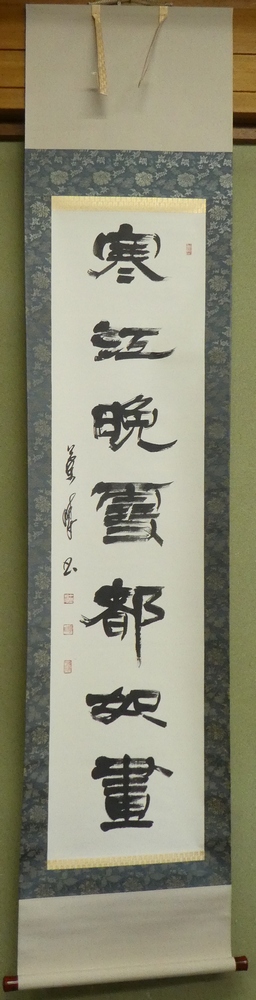 寒江晩雪都如畫